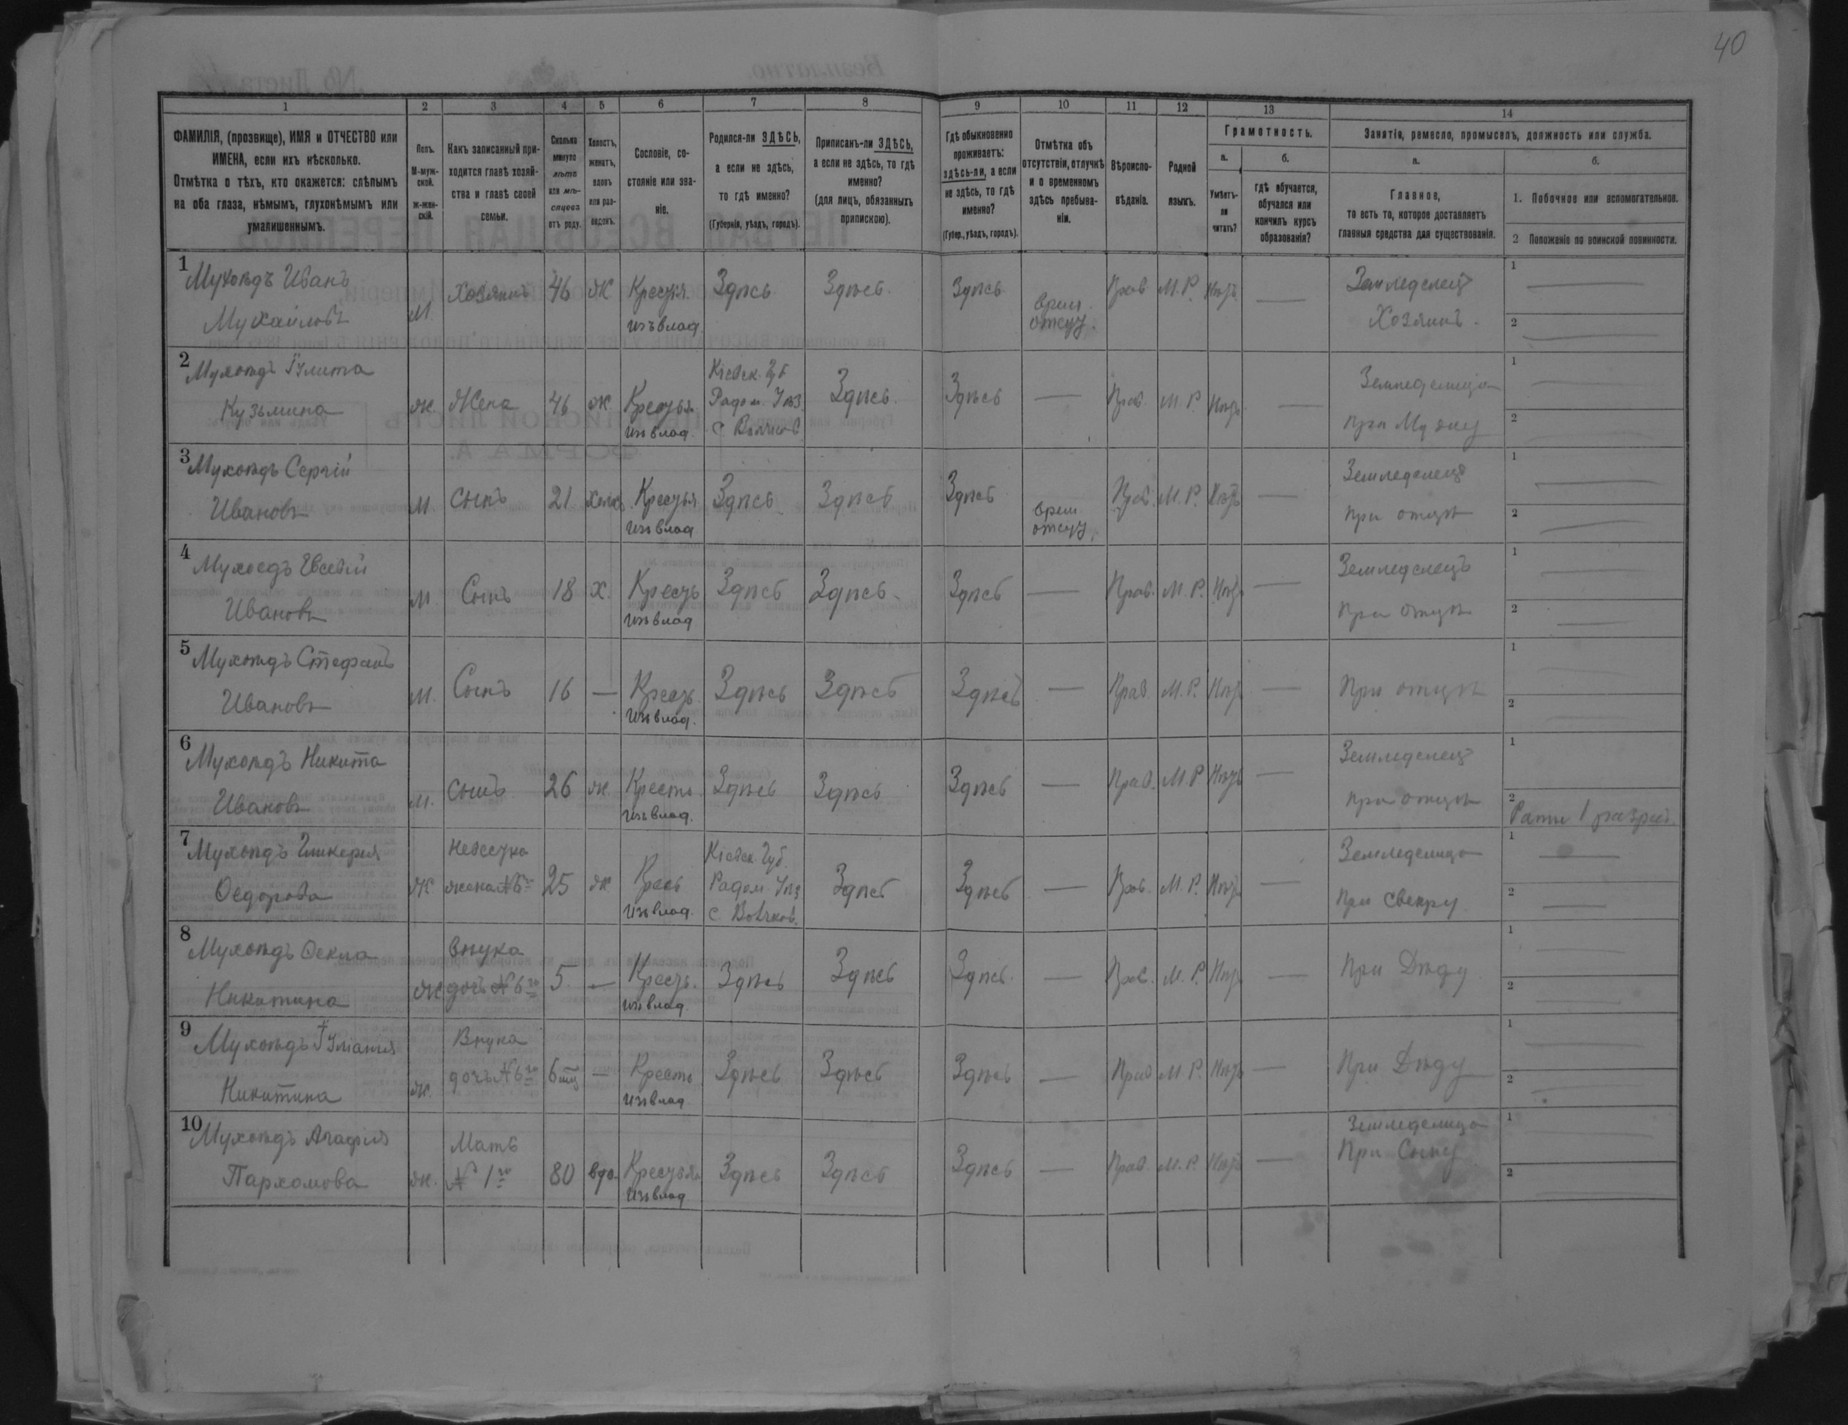 40
1 2 3 4 5 6 7 8 9 10 11 12 13 14
ФАМИЛІЯ, (прозвище), ИМЯ и ОТЧЕСТВО или
ИМЕНА, если ихъ нѣсколько.
Отмѣтка о тѣхъ, кто окажется: слѣпымъ
на оба глаза, нѣмымъ, глухонѣмымъ или
умалишеннымъ.
Полъ.
М-муж-
ской.
Ж-жен-
скій.
Какъ записанный при-
ходится главѣ хозяй-
ства и главѣ своей
семьи.
Сколько
минуло
лѣтъ
или мѣ-
сяцевъ
отъ роду.
Холостъ,
женатъ,
вдовъ
или раз-
веденъ.
Сословіе, со-
стояніе или зва-
ніе.
Родился-ли ЗДѢСЬ,
а если не здѣсь,
то гдѣ именно?
(Губернія, уѣздъ, городъ).
Приписанъ-ли ЗДѢСЬ,
а если не здѣсь, то гдѣ
именно?
(для лицъ, обязанныхъ
припискою).
Гдѣ обыкновенно
проживаетъ:
здѣсь-ли, а если
не здѣсь, то гдѣ
именно?
(Губер., уѣздъ, городъ).
Отмѣтка объ
отсутствіи, отлучкѣ
и о временномъ
здѣсь пребыва-
ніи.
Вѣроиспо-
вѣданіе.
Родной
языкъ.
Грамотность.
а.
Умѣетъ-
ли
читать?
б.
гдѣ обучается,
обучался или
кончилъ курсъ
образованія?
Занятіе, ремесло, промыселъ, должность или служба.
а.
Главное,
то есть то, которое доставляетъ
главныя средства для существованія.
б.
1. Побочное или вспомогательное.
2 Положеніе по воинской повинности.
1 Мухоѣдъ Иванъ
Михайловъ
М Хозяинъ 46 Ж Крестья
изъ влад.
Здѣсь Здѣсь Здѣсь
врем.
отсут.
Прав М.Р. Нѣтъ —
Земледелецъ
Хозяинъ.
1 —
2 —
2 Мухоѣдъ Улита
Кузьмина
Ж. Жена 46 Ж Крестья
изъ влад.
Кіевск. Губ
Радом. Уѣз.
Здѣсь Здѣсь — Прав. М.Р. Нѣтъ —
Земледелица
при Мужу
1 —
2 —
3 Мухоѣдъ Сергій
Ивановъ
М Сынъ 21 Крестья
изъ влад
Здѣсь Здѣсь Здѣсь
врем
отсут.
Прав. М.Р. Нѣтъ —
Земледелецъ
При отцѣ
1 —
2 —
4 Мухоедъ Евсевій
Ивановъ
М. Сынъ 18 Х. Крестъ
изъ влад
Здѣсь Здѣсь Здѣсь — Прав. М.Р. Нѣтъ —
Земледелецъ
При отцѣ
1 —
2 —
5 Мухоѣдъ Стефанъ
Ивановъ
М. Сынъ 16 — Кресть
изъ влад.
Здѣсь Здѣсь Здѣсь — Прав М.Р. Нѣтъ —
При отцѣ
1 —
2 —
6 Мухоѣдъ Никита
Ивановъ
М. Сынъ 26 Ж Кресть
изъ влад.
Здѣсь Здѣсь Здѣсь — Прав. М.Р Нѣтъ —
Земледелецъ
при отцѣ
1
2 Ратн 1 разряд.
7 Мухоѣдъ Гликерія
Ѳедорова
Ж Невестка
жена №6го
25 Ж Кресть
изъ влад.
Кіевск. Губ.
Радом. Уѣз
Здѣсь Здѣсь — Прав. М.Р. Нѣтъ —
Земледелица
При свекру
1 —
2 —
8 Мухоѣдъ Ѳекла
Никитина
Ж внука
дочь №6го
5 — Кресть.
изъ влад.
Здѣсь Здѣсь Здѣсь — Прав. М.Р. Нѣтъ —
При Дѣду
1 —
2 —
9 Мухоѣдъ Уліанія
Никитина
Ж. Внука
дочь №6го
6 мѣ — Кресть
изъ влад
Здѣсь Здѣсь Здѣсь — Прав М.Р. Нѣтъ —
При Дѣду
1 —
2 —
10 Мухоѣдъ Агафія
Пархомова
Ж. Мать
№ 1го
80 вдо. Крестья
изъ влад
Здѣсь Здѣсь Здѣсь — Прав. М.Р. Нѣтъ —
Земледелица
При Сыну
1 —
2 —